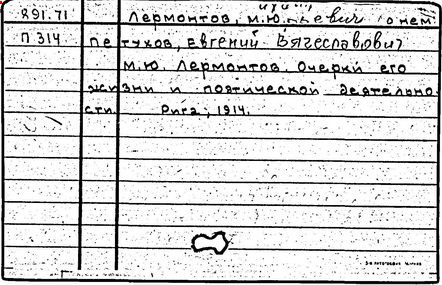 891.71 Лермонтов, М.Ю. о нем
П 314 Петухов, Евгений Вячеславович
М.Ю. Лермонтов. Очерки его
жизни и поэтической деятельно
сти. Рига, 1914.